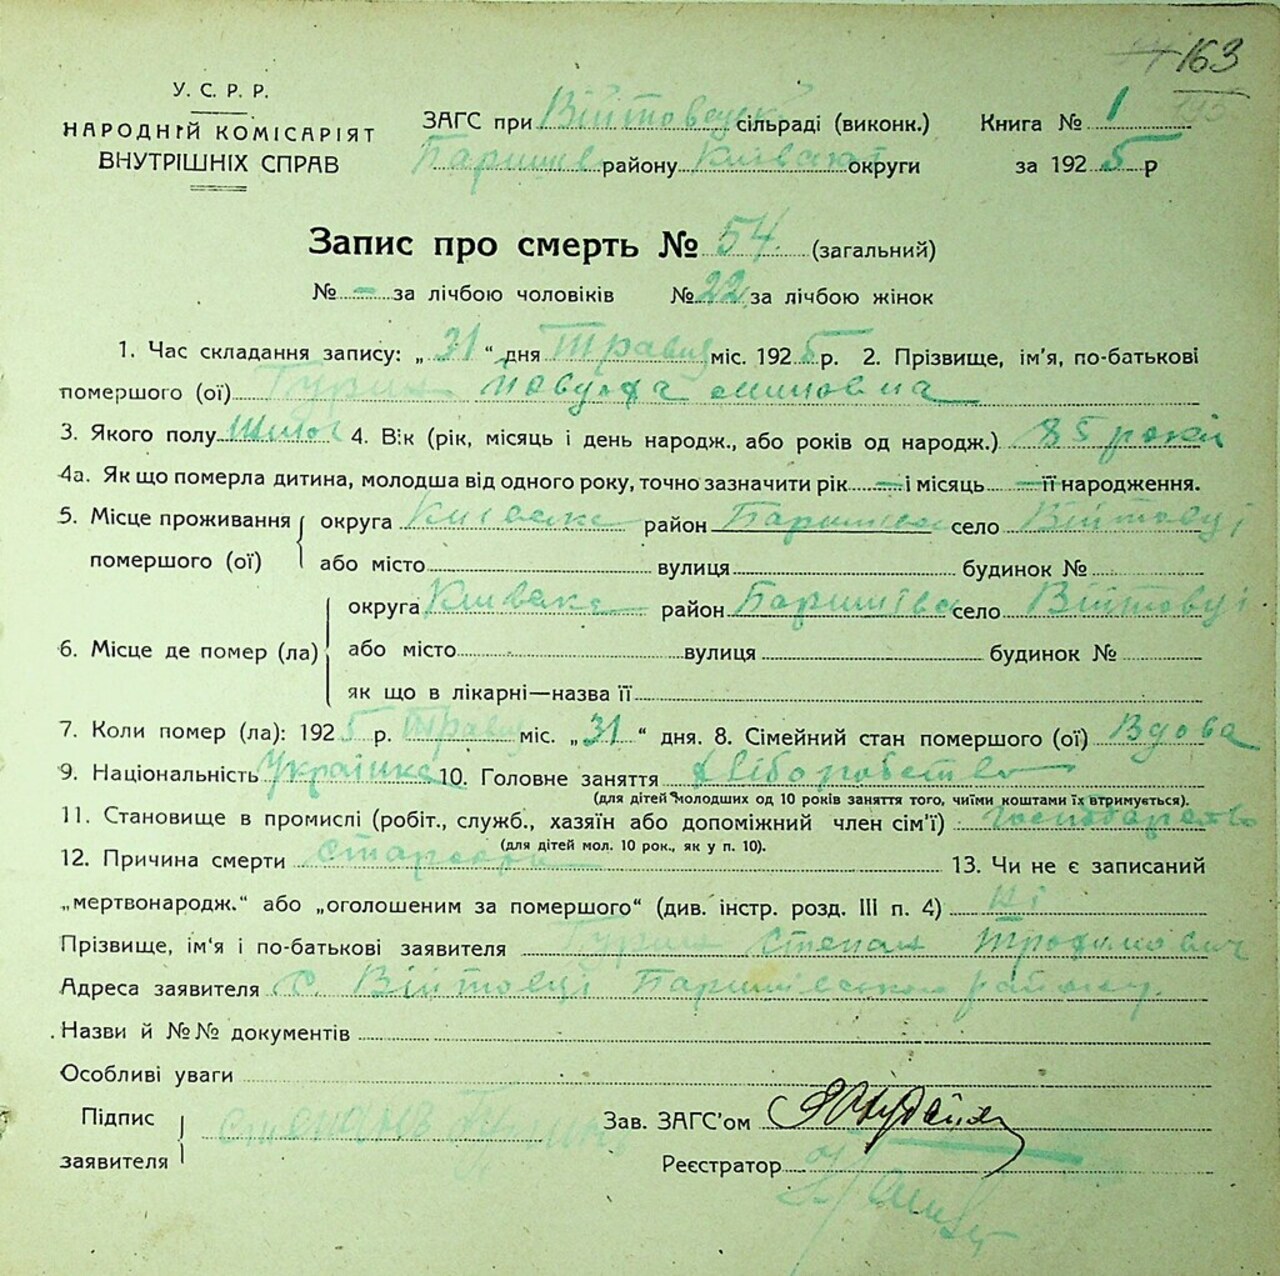 163
У. С. Р. Р.
НАРОДНІЙ КОМІСАРІЯТ
ВНУТРІШНІХ СПРАВ
ЗАГС при Війтовецьк сільраді (виконк.) Книга № 1
Баришів району Київської округи за 1925 р
Запис про смерть № 54 (загальний)
№ — за лічбою чоловіків № 22 за лічбою жінок
1. Час складання запису: „ 31 “ дня Травця міс. 1925 р. 2. Прізвище, ім'я, по-батькові
помершого (ої) Гурин
3. Якого полу Жіноч 4. Вік (рік, місяць і день народж., або років од народж.) 85 років
4а. Як що померла дитина, молодша від одного року, точно зазначити рік — і місяць — її народження.
5. Місце проживання помершого (ої) округа Київська район Баришівс село Війтовці
або місто вулиця будинок №
6. Місце де помер (ла) округа Київська район Баришівс село Війтовці
або місто вулиця будинок №
як що в лікарні—назва її
7. Коли помер (ла): 1925 р. Травця міс. „ 31 “ дня. 8. Сімейний стан помершого (ої) Вдова
9. Національність Українка 10. Головне заняття хліборобство
(для дітей молодших од 10 років заняття того, чиїми коштами їх втримується).
11. Становище в промислі (робіт., служб., хазяїн або допоміжний член сім'ї)
(для дітей мол. 10 рок., як у п. 10).
12. Причина смерти 13. Чи не є записаний
„мертвонародж.“ або „оголошеним за помершого“ (див. інстр. розд. III п. 4) ні
Прізвище, ім'я і по-батькові заявителя Гурин Степан Трофимович
Адреса заявителя с. Війтовці Баришівського району.
Назви й №№ документів
Особливі уваги
Підпис заявителя Гурин
Зав. ЗАГС'ом
Реєстратор